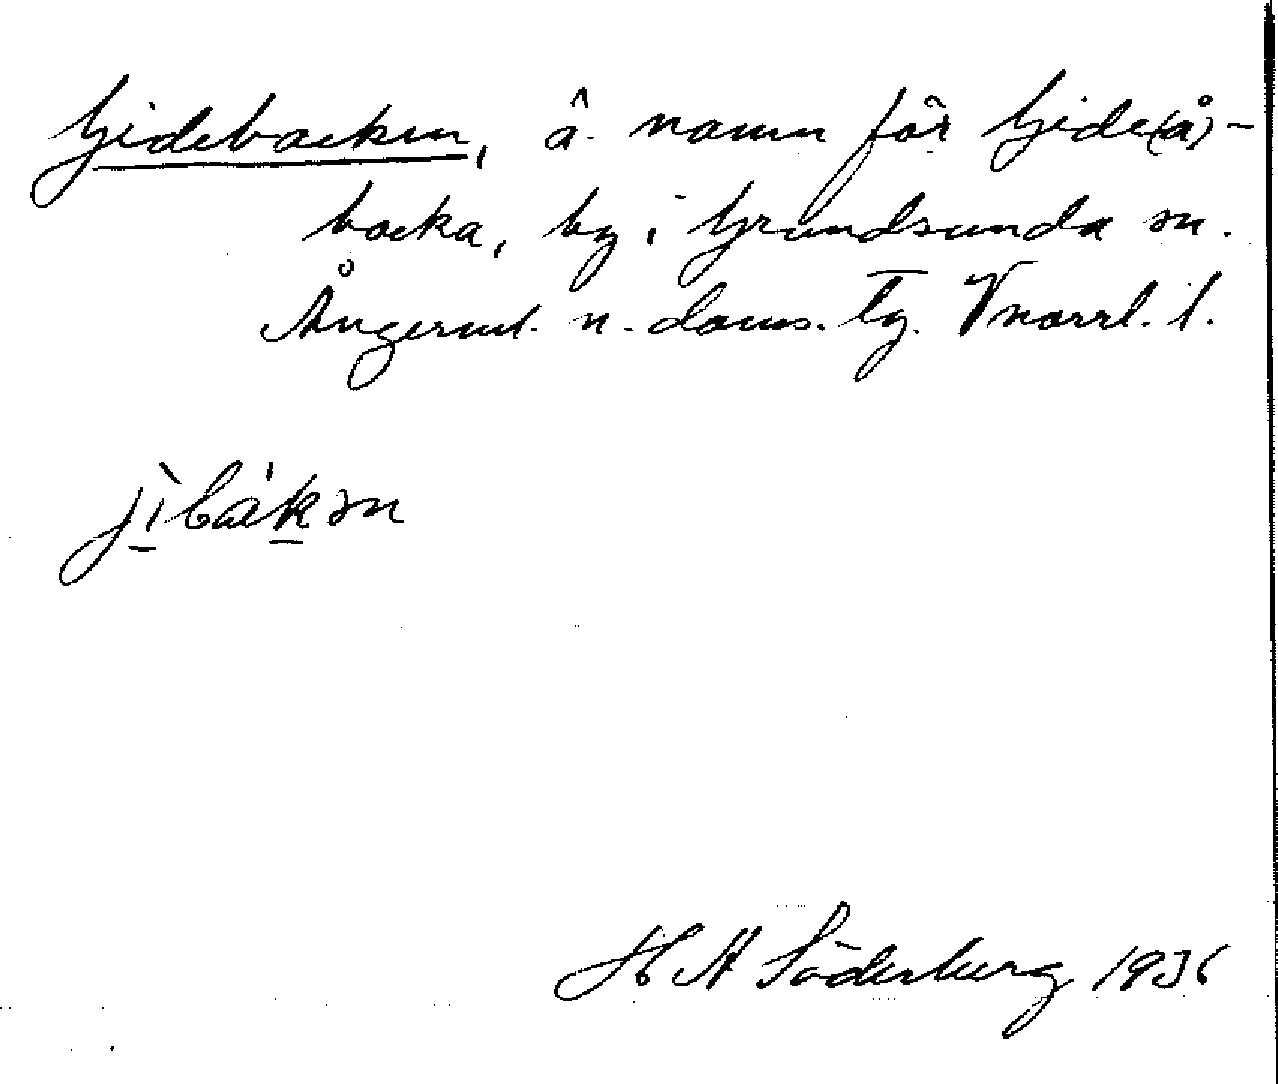 Gidebacken, â. namn för Gide(å)-
backa, by i Grundsunda sn.
Ångerml. n. doms. tg. Vnorrl. l.
H A Söderberg 1936